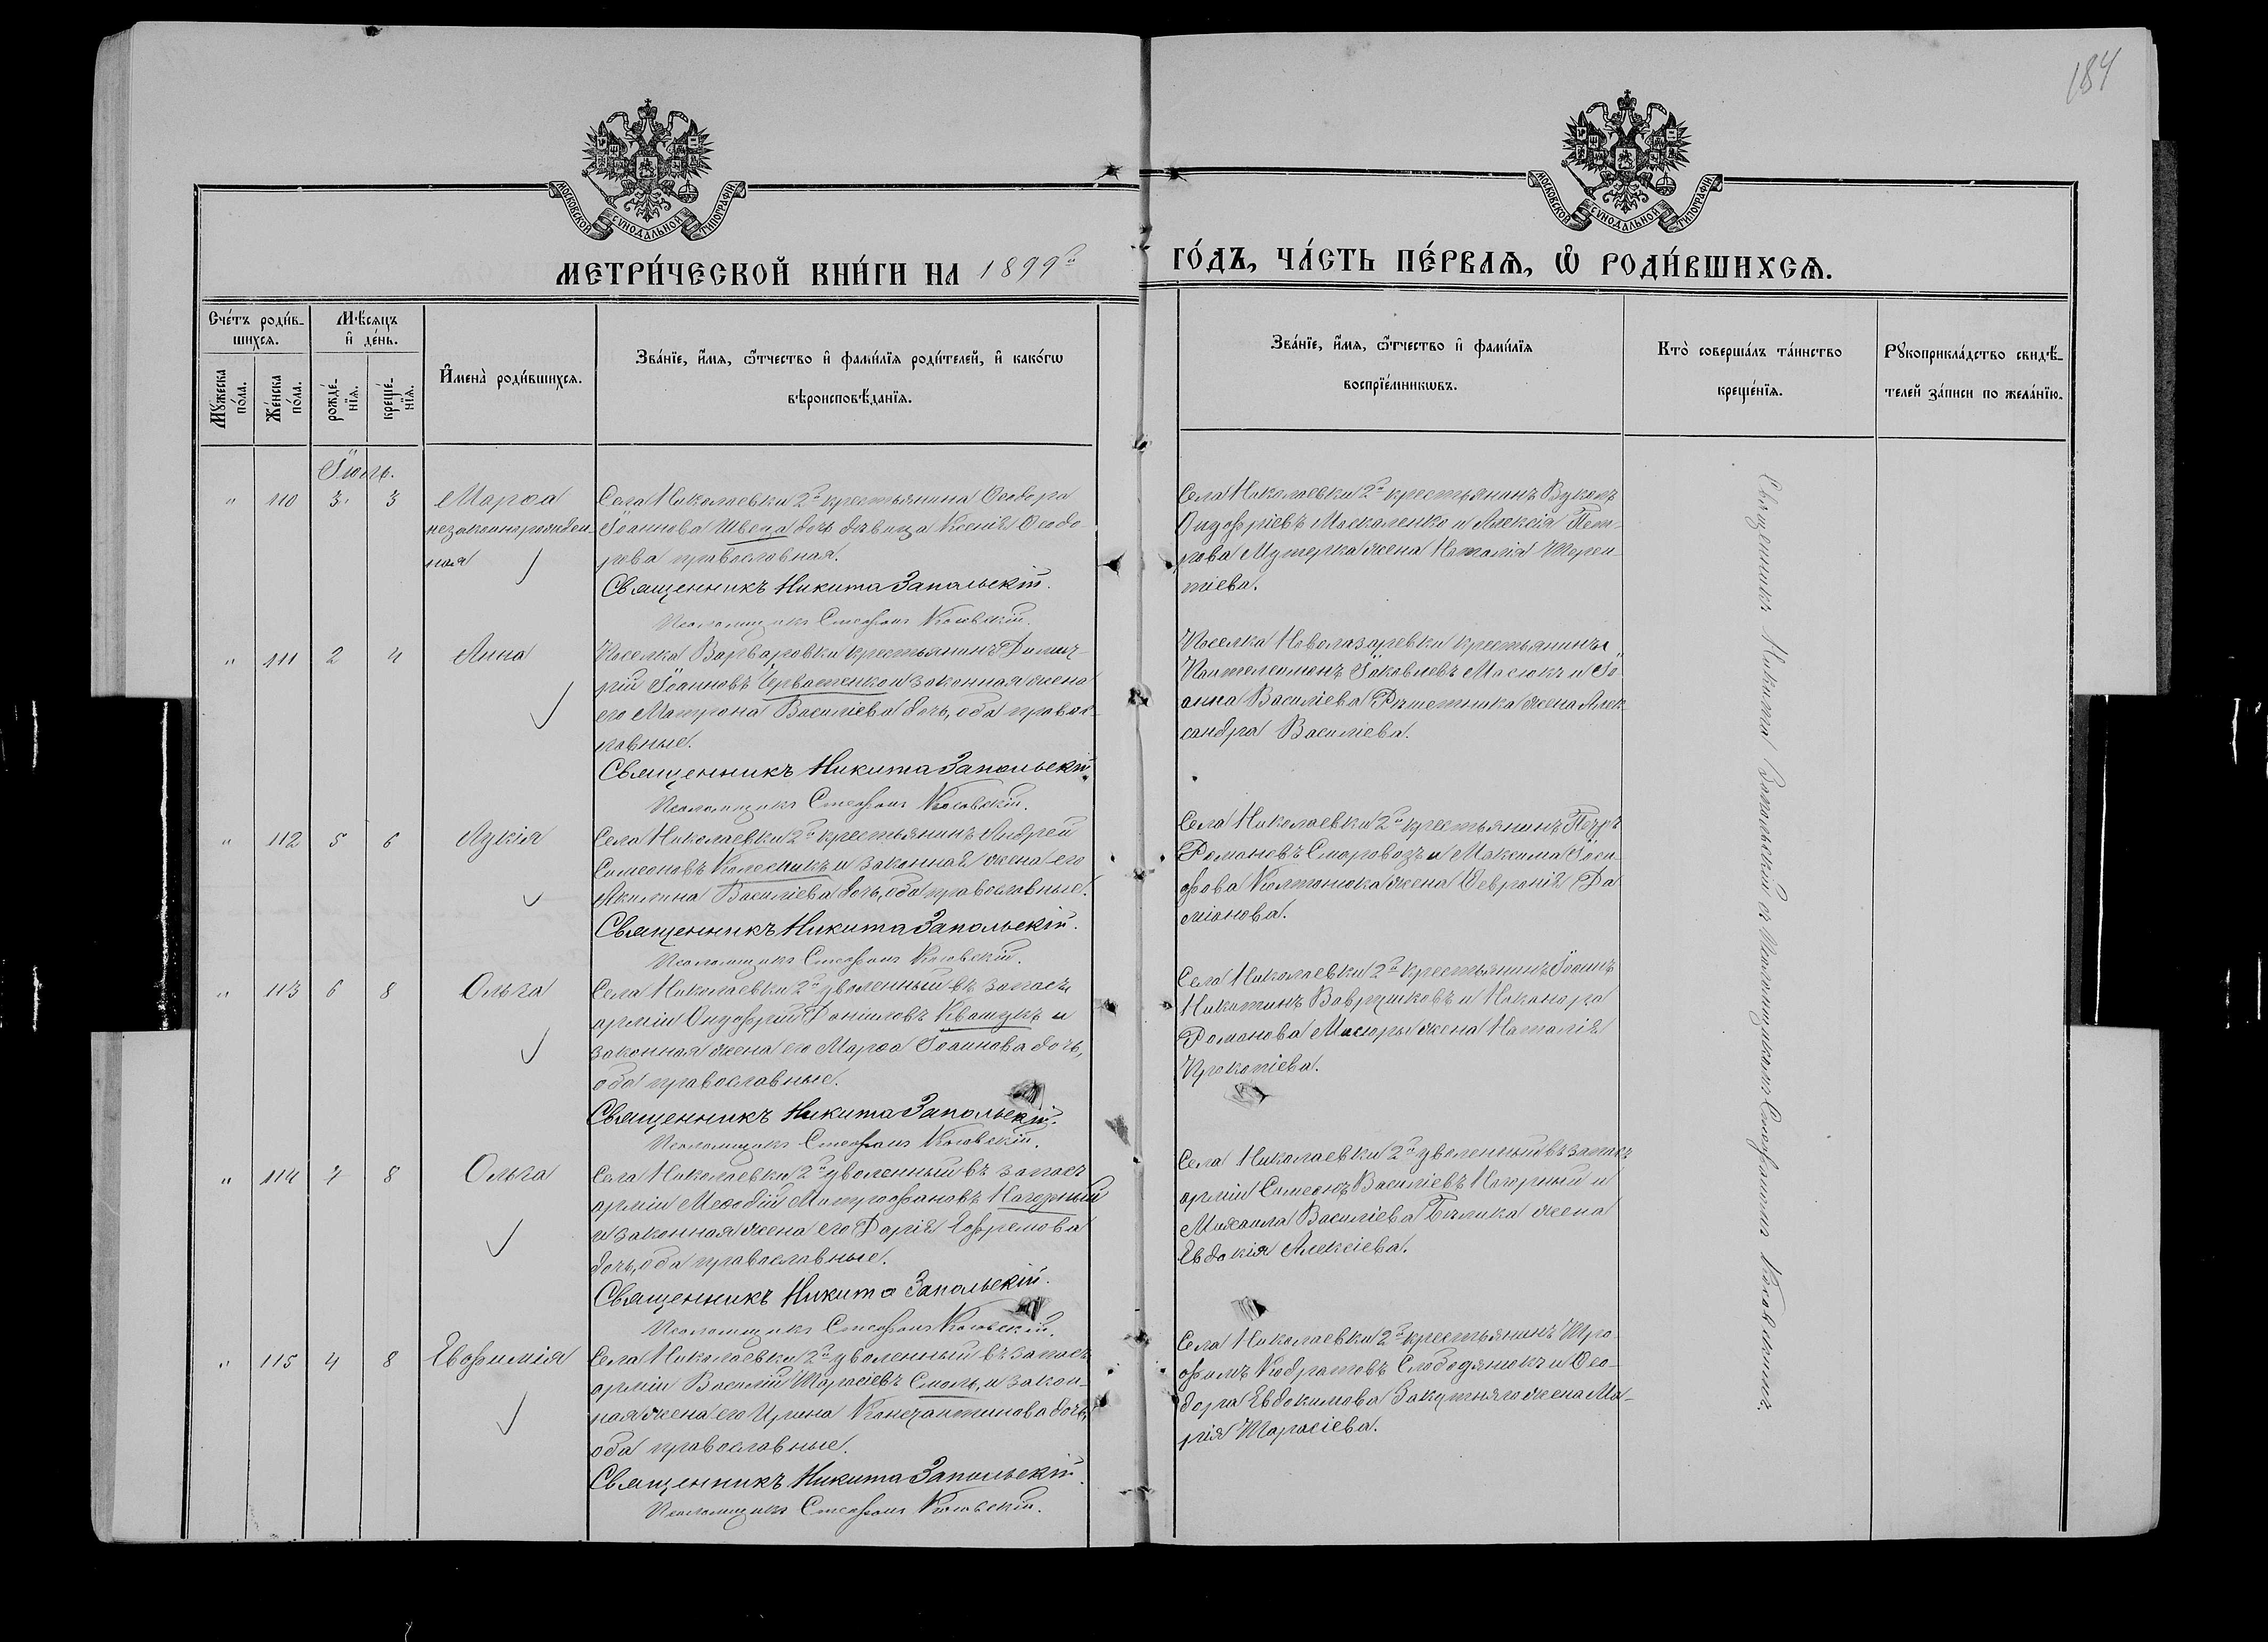 184
МОСКОВСКОЙ СѴНОДАЛЬНОЙ ТИПОГРАФІИ
МОСКОВСКОЙ СѴНОДАЛЬНОЙ ТИПОГРАФІИ
МЕТРИ́ЧЕСКОЙ КНИ́ГИ НА 1899й ГО́ДЪ, ЧА́СТЬ ПЕ́РВАѦ, Ѽ РОДИ́ВШИХСѦ.
Сче́тъ роди́в-
шихсѧ.
Мꙋ́жеска по́ла.
Же́нска по́ла.
Мѣ́сѧцъ и҆ де́нь.
рожде́-
нїѧ.
креще́-
нїѧ.
И҆мена̀ роди́вшихсѧ.
Зва́нїе, и҆́мѧ, ѻ҆́тчество и҆ фами́лїѧ роди́телей, и҆ како́гѡ
вѣроисповѣ́данїѧ.
Зва́нїе, и҆́мѧ, ѻ҆́тчество и҆ фами́лїѧ
воспрїе́мникѡвъ.
Кто̀ соверша́лъ та́инство
креще́нїѧ.
Рꙋкоприкла́дство свидѣ́-
телей за́писи по жела́нїю.
Іюль.
" 110 3. 3 Марѳа
незаконнорожден-
ная
Села Николаевки 2й крестьянина Ѳеодора
Іоаннова Швеца дочь девица Ксенія Ѳеодо-
рова православная.
Священникъ Никита Запольскій.
Псаломщикъ Стефанъ Косовскій.
Села Николаевки 2й крестьянинъ Вуколъ
Онуфріевъ Москаленко и Алексія Пет-
рова Мутерка жена Наталія Терен-
тіева.
" 111 2 4 Анна
Поселка Варваровки крестьянинъ Димит-
рій Іоанновъ Черватенко и законная жена
его Матрона Василіева дочь, оба правос-
лавные.
Священникъ Никита Запольскій
Псаломщикъ Стефанъ Косовскій.
Поселка Новолазаревки крестьянинъ
Пантелеимонъ Іаковлевъ Масюкъ и Іо-
анна Василіева Решетника жена Алек-
сандра Василіева.
" 112 5 6 Лукія
Села Николаевки 2й крестьянинъ Андрей
Симеоновъ Колесникъ и законная жена его
Акилина Василіева дочь, оба православные.
Священникъ Никита Запольскій.
Псаломщикъ Стефанъ Косовскій.
Села Николаевки 2й крестьянинъ Петръ
Романовъ Скоровозъ и Максима Іоси-
фова Колтонюка жена Февронія Да-
міанова.
" 113 6 8 Ольга
Села Николаевки 2й уволенный въ запасъ
арміи Онуфрій Даніиловъ Квашукъ и
законная жена его Марѳа Іоаннова дочь,
оба православные.
Священникъ Никита Запольскій.
Псаломщикъ Стефанъ Косовскій.
Села Николаевки 2й крестьянинъ Іоаннъ
Никитинъ Ваврушковъ и Никанора
Романова Масюры жена Наталія
Прокопіева.
" 114 7 8 Ольга
Села Николаевки 2й уволенный въ запасъ
арміи Меѳодій Митрофановъ Нагорный
и законная жена его Дарія Ефремова
дочь, оба православные.
Священникъ Никита Запольскій.
Псаломщикъ Стефанъ Косовскій.
Села Николаевки 2й уволенный въ запасъ
арміи Симеонъ Василіевъ Нагорный и
Михаила Василіева Белика жена
Евдокія Алексіева.
" 115 4 8 Евфимія
Села Николаевки 2й уволенный въ запасъ
арміи Василій Тарасіевъ Смоль, и закон-
ная жена его Ирина Константинова дочь,
оба православные.
Священникъ Никита Запольскій.
Псаломщикъ Стефанъ Косовскій.
Села Николаевки 2й крестьянинъ Тро-
фимъ Кодратовъ Слободянюкъ и Ѳео-
дора Евдокимова Закутняго жена Ма-
рія Тарасіева.
Священникъ Никита Запольскій съ Псаломщикомъ Стефаномъ Косовскимъ.